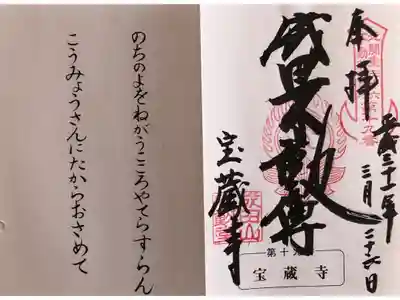 奉拝
平成三十一年
三月二十六日
不動尊
宝蔵寺
第十九
宝蔵寺
のちのよをねがうこころやてらすらん
こうみょうさんにたからおさめて